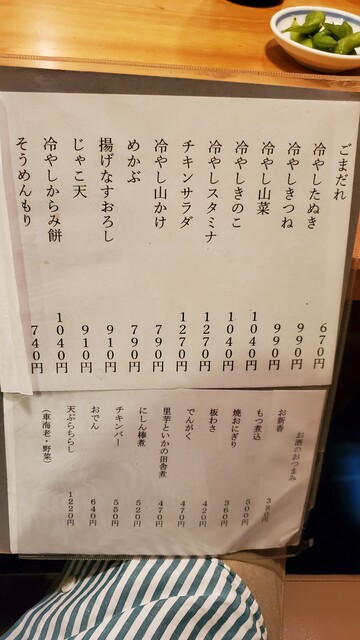 ごまだれ 670円
冷やしたぬき 990円
冷やしきつね 990円
冷やし山菜 1040円
冷やしきのこ 1040円
冷やしスタミナ 1270円
チキンサラダ 1270円
冷やし山かけ 790円
めかぶ 790円
揚げなすおろし 910円
じゃこ天 910円
冷やしからみ餅 1040円
そうめんもり 740円
お酒のおつまみ
お新香 380円
もつ煮込 500円
焼おにぎり 360円
板わさ 420円
でんがく 470円
里芋といかの田舎煮 470円
にしん棒煮 520円
チキンバー 550円
おでん 640円
天ぷらちらし 1220円
(車海老・野菜)